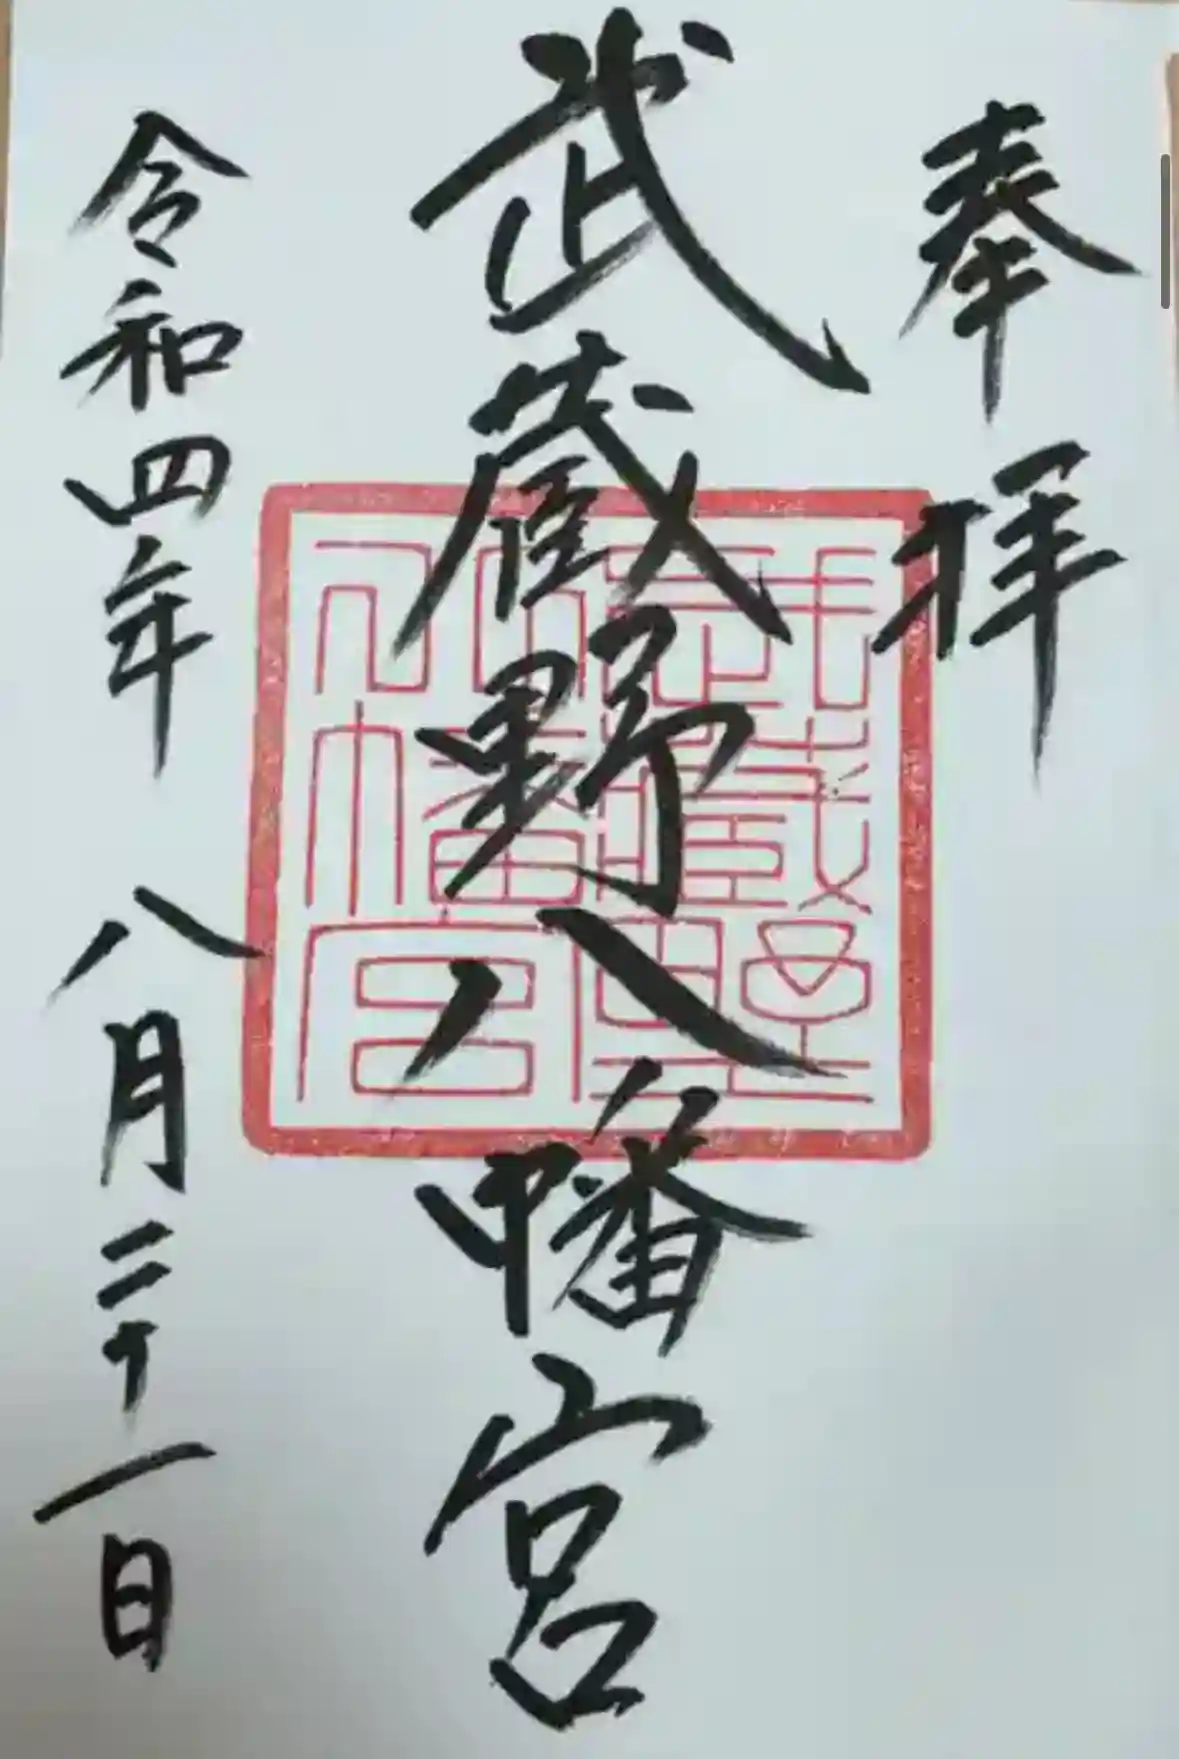 奉拝
武蔵野八幡宮
令和四年 八月二十一日
武藏野
八幡宮